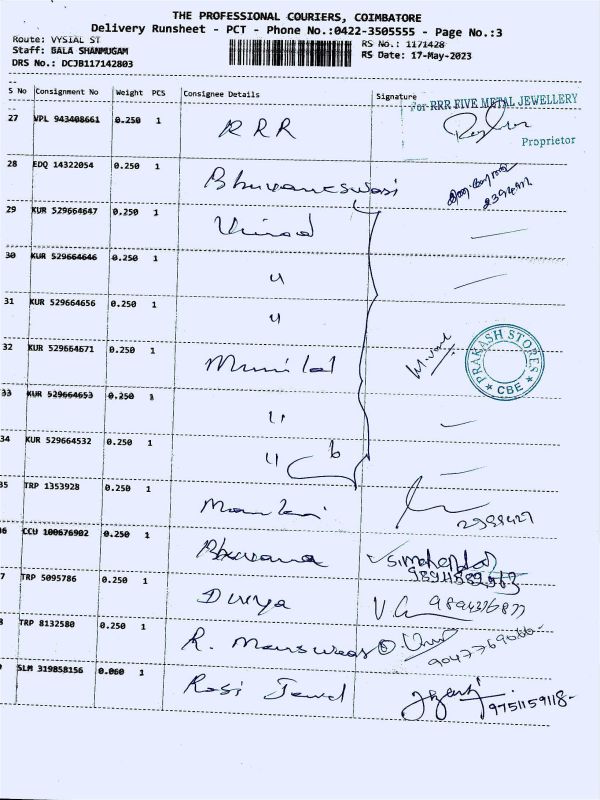 THE PROFESSIONAL COURIERS, COIMBATORE
Delivery Runsheet - PCT - Phone No.:0422-3505555 - Page No.:3
Route: VYSIAL ST
RS No.: 1171428
Staff: BALA SHANMUGAM
RS Date: 17-May-2023
DRS No.: DCJB117142803
S No Consignment No Weight PCS Consignee Details Signature
For RRR FIVE METAL JEWELLERY
27 VPL 943408661 0.250 1 RRR
Proprietor
28 EDQ 14322054 0.250 1 Bhuvaneswari
29 KUR 529664647 0.250 1 Vinod
30 KUR 529664646 0.250 1 "
31 KUR 529664656 0.250 1 "
32 KUR 529664671 0.250 1 Munilal
PRAKASH STORES
★ CBE ★
33 KUR 529664653 0.250 1 "
34 KUR 529664532 0.250 1 " 6
35 TRP 1353928 0.250 1
6 CCU 100676902 0.250 1 Bhuvana
7 TRP 5095786 0.250 1 Divya
8 TRP 8132580 0.250 1 R.
SLM 319858156 0.060 1 Rasi Jewel
9751159118-